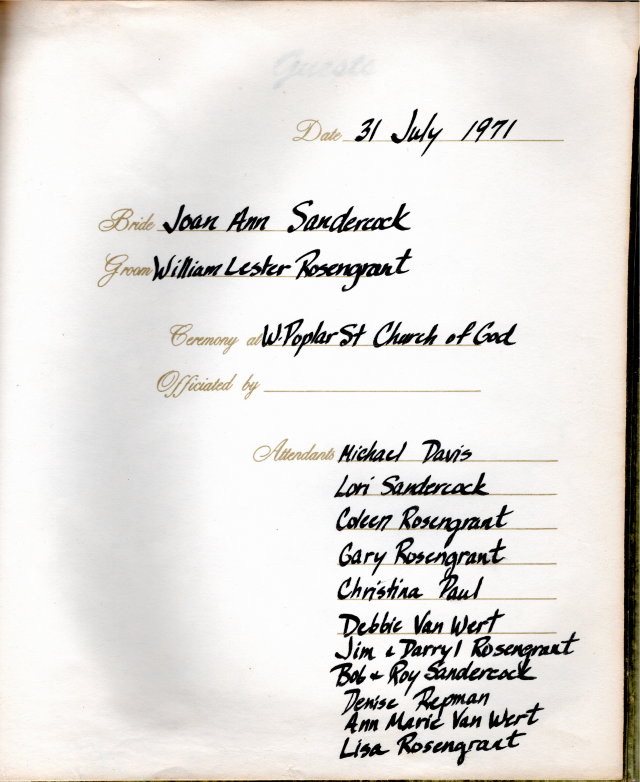 Guests
Date 31 July 1971
Bride Joan Ann Sandercock
Groom William Lester Rosengrant
Ceremony at W. Poplar St Church of God
Officiated by
Attendants Michael Davis
Lori Sandercock
Coleen Rosengrant
Gary Rosengrant
Christina Paul
Debbie Van Wert
Jim & Darryl Rosengrant
Bob & Roy Sandercock
Denise Repman
Ann Marie Van Wert
Lisa Rosengrant